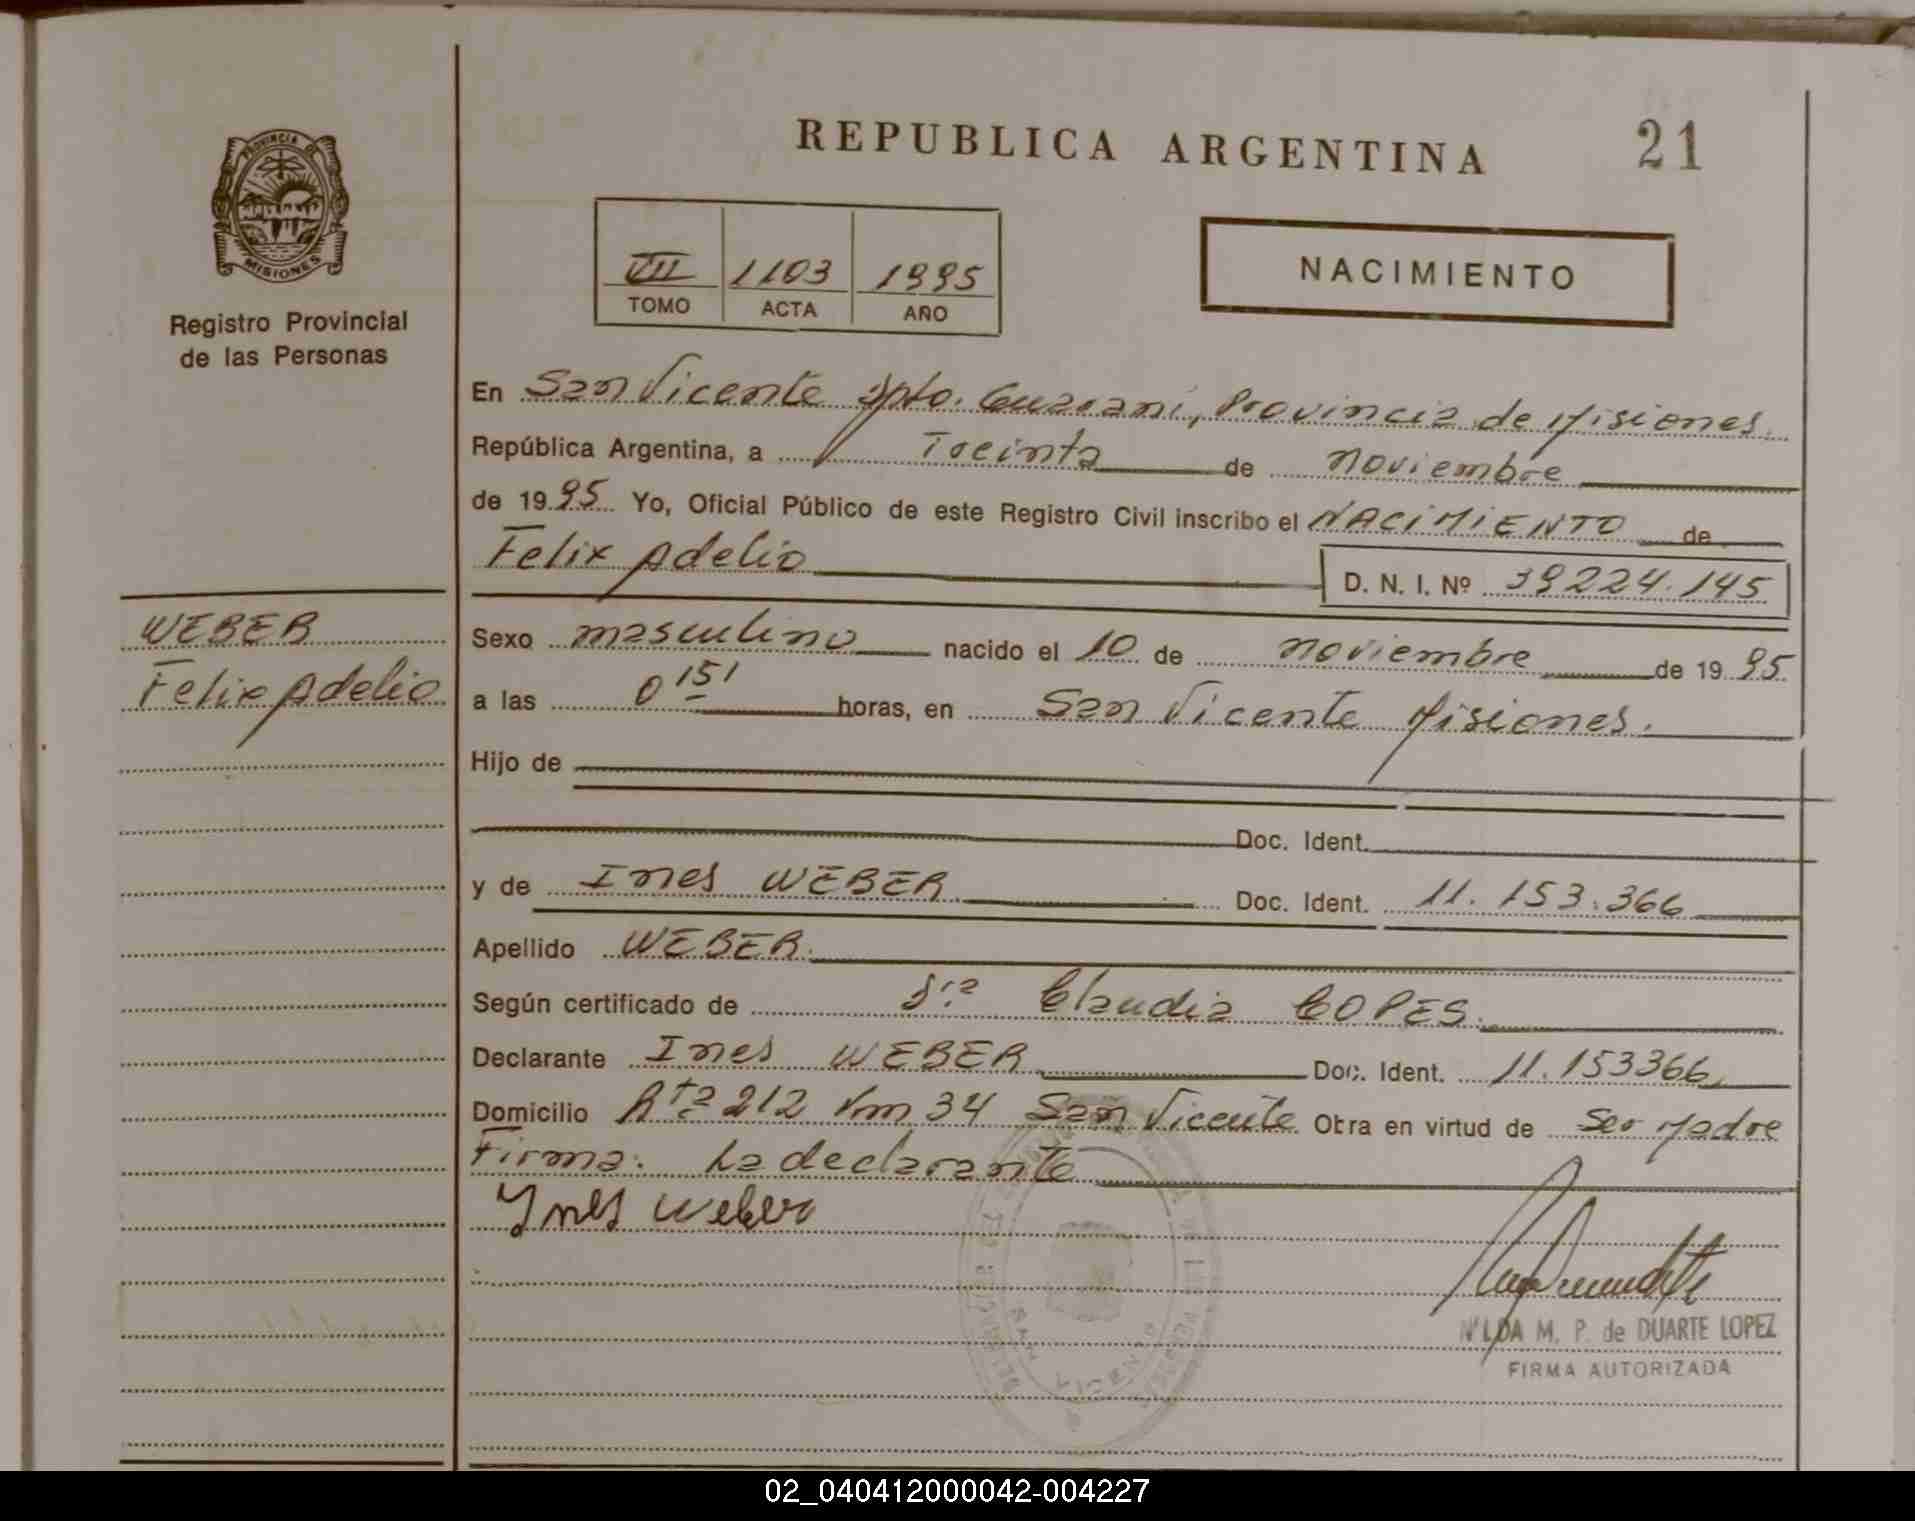 REPUBLICA ARGENTINA
21
PROVINCIA DE
MISIONES
Registro Provincial
de las Personas
VII 1103 1995
TOMO ACTA AÑO
NACIMIENTO
En San Vicente Dpto. Guarani, Provincia de Misiones.
República Argentina, a Treinta de noviembre
de 1995 Yo, Oficial Público de este Registro Civil inscribo el NACIMIENTO de
Felix Adelio D. N. I. Nº 39224.145
WEBER
Felix Adelio
Sexo masculino nacido el 10 de noviembre de 1995
a las 0 15' horas, en San Vicente Misiones.
Hijo de
Doc. Ident.
y de Ines WEBER Doc. Ident. 11.153.366
Apellido WEBER
Según certificado de Dra Claudia COPES
Declarante Ines WEBER Doc. Ident. 11.153366
Domicilio Rta 212 Km 34 San Vicente Obra en virtud de ser Madre
Firma: La declarante
Ynes Weber
NILDA M. P. de DUARTE LOPEZ
FIRMA AUTORIZADA
SAN VICENTE
02_040412000042-004227